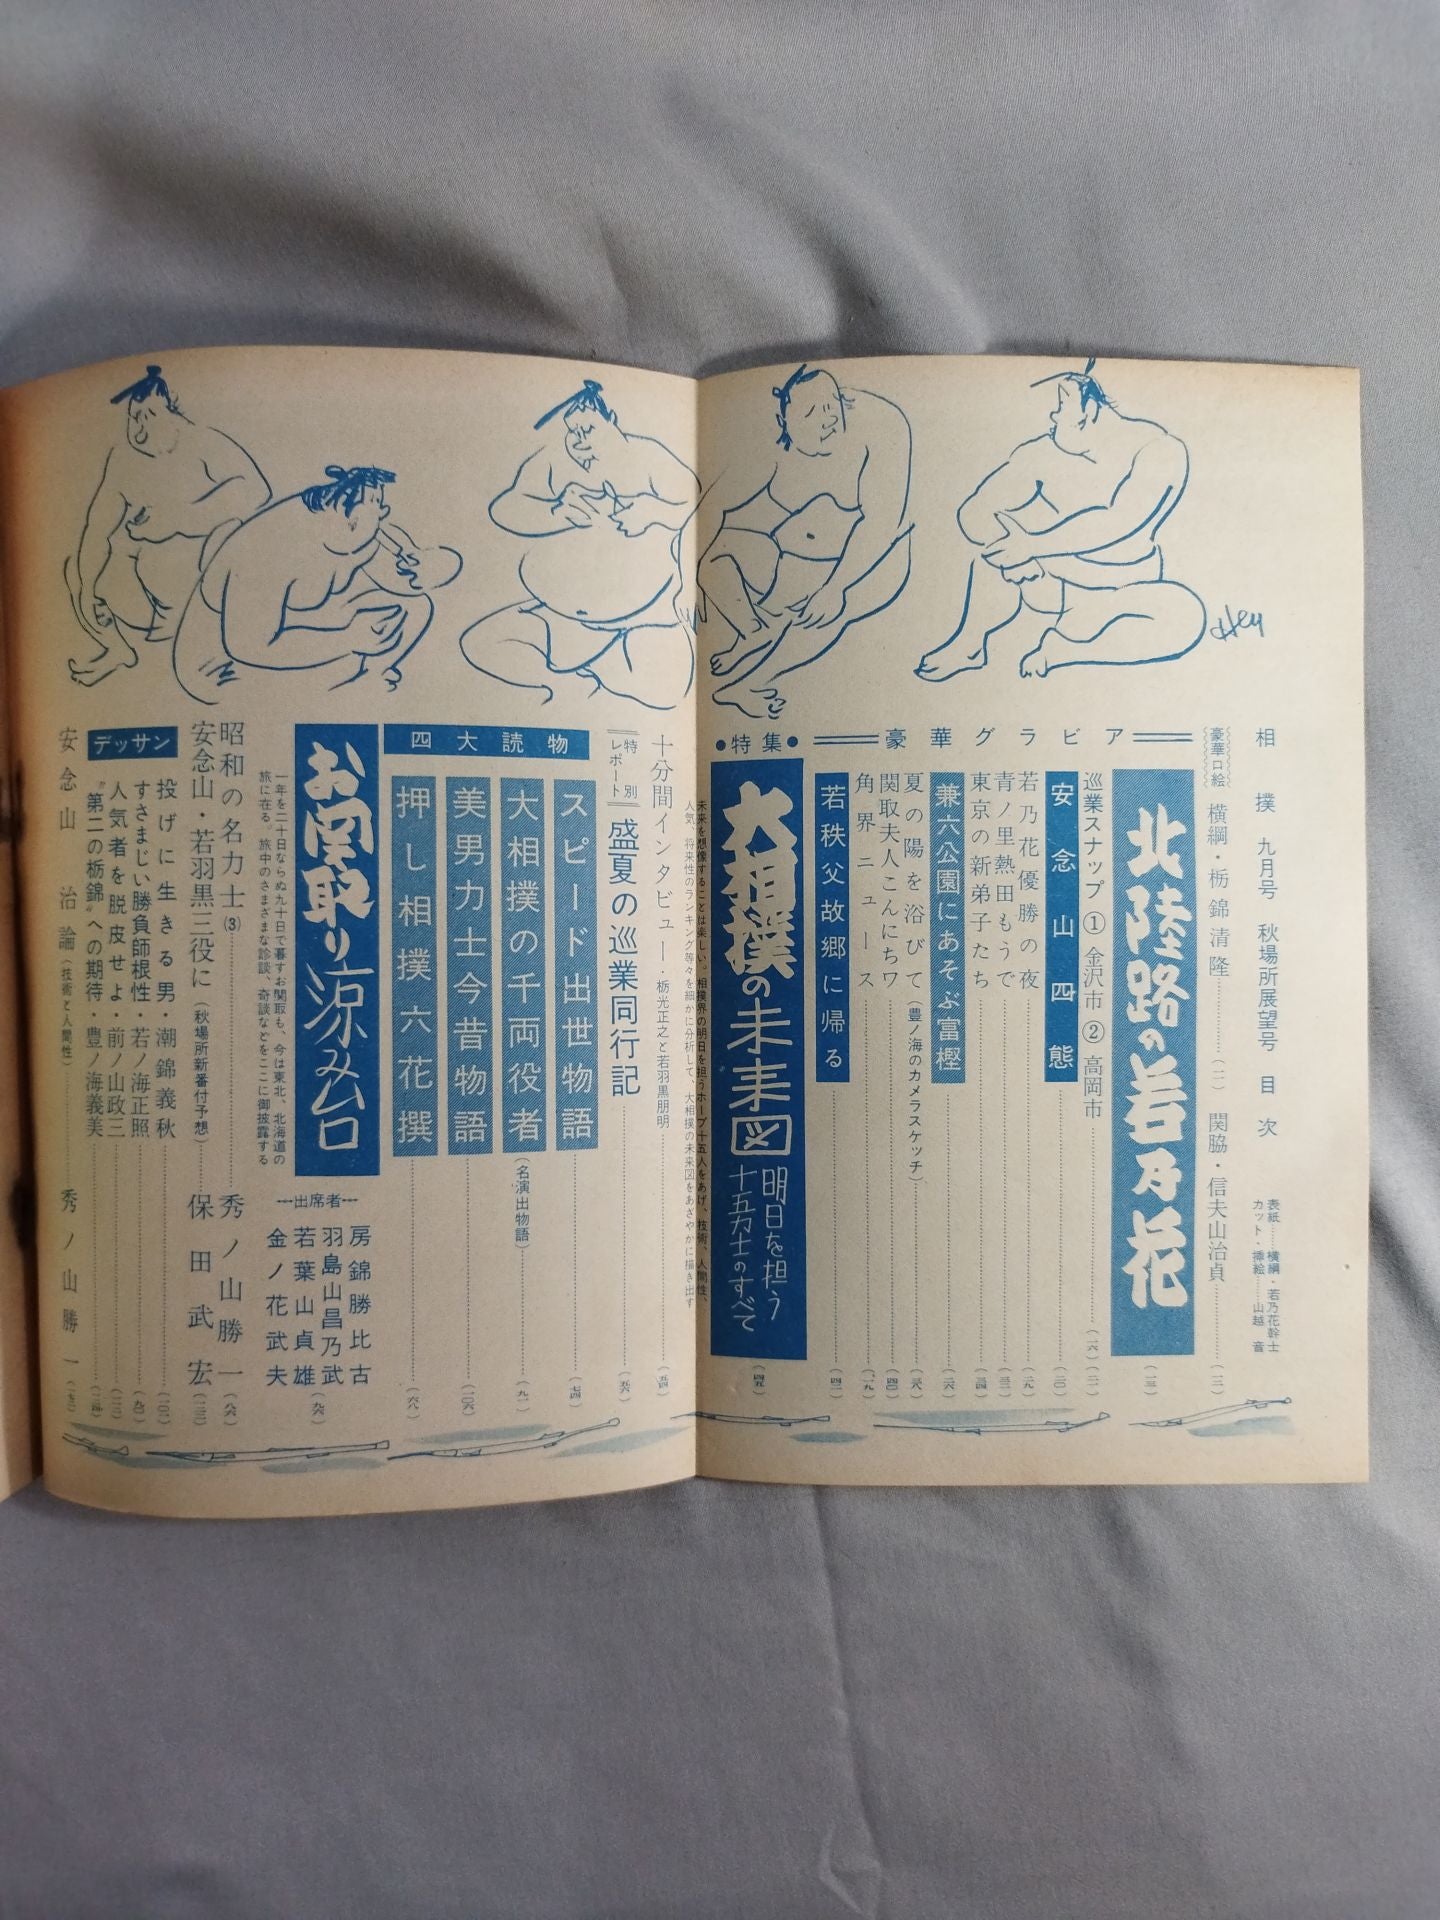 相撲 九月号 秋場所展望号 目次
表紙……横綱・若乃花幹士
カット・挿絵……山越 音
豪華口絵
横綱・栃錦清隆
関脇・信夫山治貞
豪華グラビア
北陸路の若乃花
巡業スナップ ① 金沢市 ② 高岡市
安念山四態
若乃花優勝の夜
青ノ里熱田もうで
東京の新弟子たち
兼六公園にあそぶ富樫
夏の陽を浴びて(豊ノ海のカメラスケッチ)
関取夫人こんにちワ
角界ニュース
若秩父故郷に帰る
●特集●
大相撲の未来図
明日を担う
十五力士のすべて
未来を想像することは楽しい。相撲界の明日を担うホープ十五人をあげ、技術、人間性、
人気、将来性のランキング等々を細かに分析して、大相撲の未来図をあざやかに描き出す
十分間インタビュー・栃光正之と若羽黒朋明
特別レポート
盛夏の巡業同行記
四大読物
スピード出世物語
大相撲の千両役者(名演出物語)
美男力士今昔物語
押し相撲六花撰
お関取り涼み台
一年を二十日ならぬ九十日で暮すお関取も、今は東北、北海道の
旅に在る。旅中のさまざまな診談、奇談などをここに御披露する
―出席者―
房錦勝比古
羽島山昌乃武
若葉山貞雄
金ノ花武夫
昭和の名力士(3) 秀ノ山勝一
安念山・若羽黒三役に(秋場所新番付予想) 保田武宏
デッサン
投げに生きる男・潮錦義秋
すさまじい勝負師根性・若ノ海正照
人気者を脱皮せよ・前ノ山政三
〝第二の栃錦〟への期待・豊ノ海義美
安念山治論(技術と人間性) 秀ノ山勝一